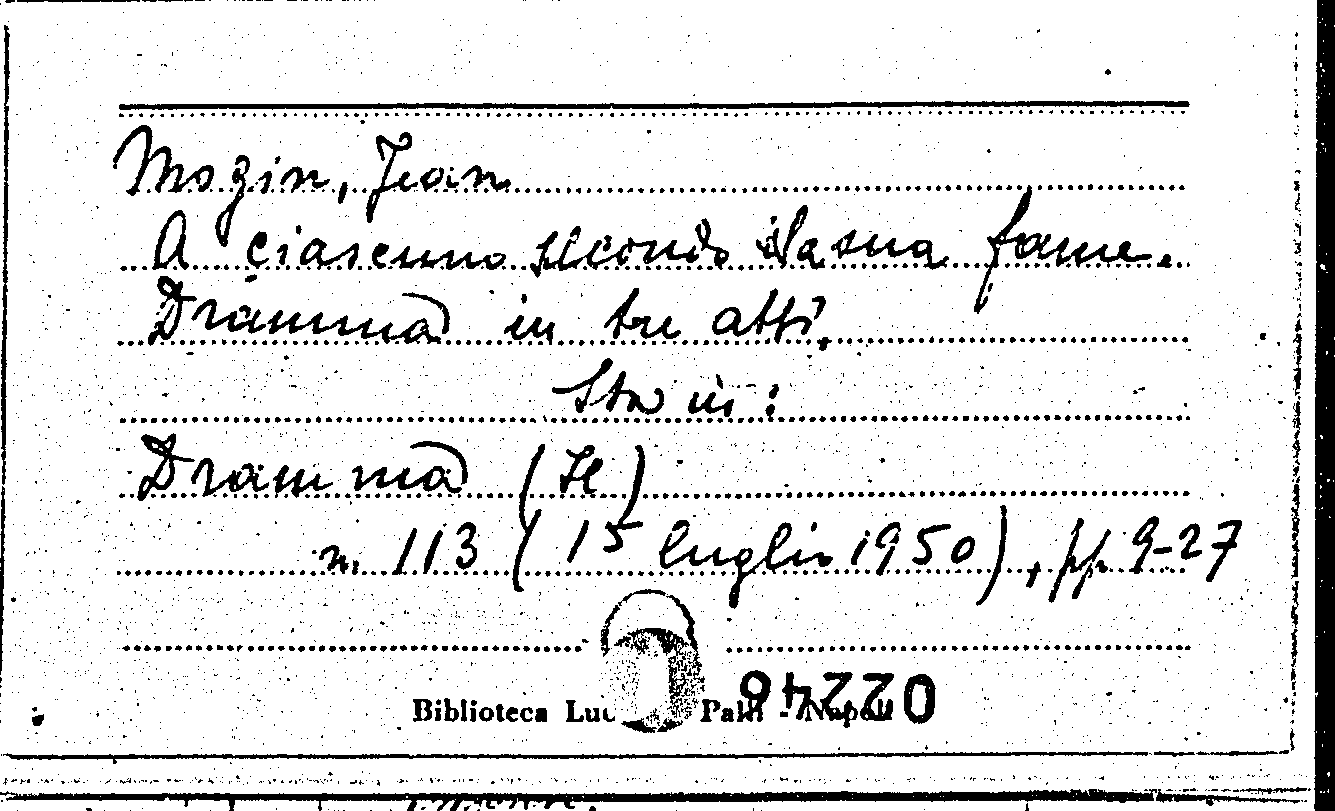 Mogin, Jean
A ciascuno secondo la sua fame.
Dramma in tre atti.
Sta in:
Dramma (Il)
n. 113 (15 luglio 1950), pp. 9-27
Biblioteca Palli - Napoli
02246